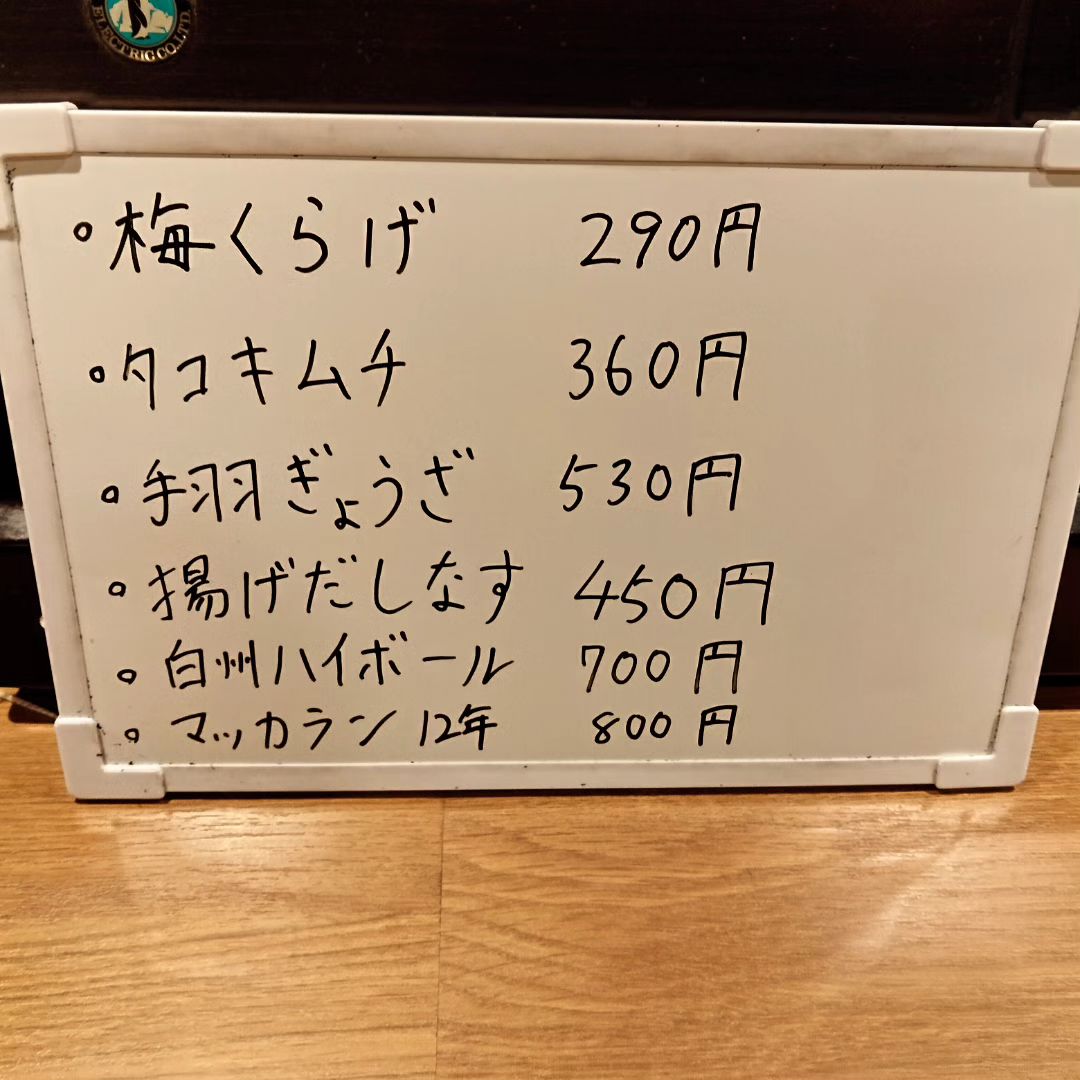 ELECTRIC CO.,LTD.
・梅くらげ 290円
・タコキムチ 360円
・手羽ぎょうざ 530円
・揚げだしなす 450円
・白州ハイボール 700円
・マッカラン12年 800円